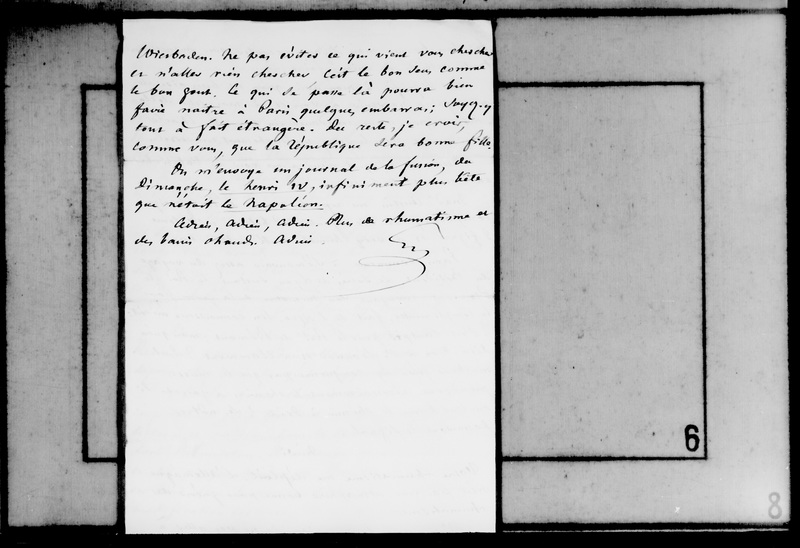 Wiesbaden. Ne pas éviter ce qui vient vous chercher
et n'aller rien chercher c'est le bon sens comme
le bon gout. Ce qui se passe là pourra bien
faire naitre à Paris quelques embarras ; soyez-y
tout à fait étrangère. Du reste, je crois,
comme vous, que la République sera bonne fille.
On m'envoye un journal de la fusion, du
Dimanche, le henri IV, infiniment plus bête
que n'était le Napoléon.
Adieu, adieu, adieu. Plus de rhumatisme et
des bains chauds. Adieu.
6
8